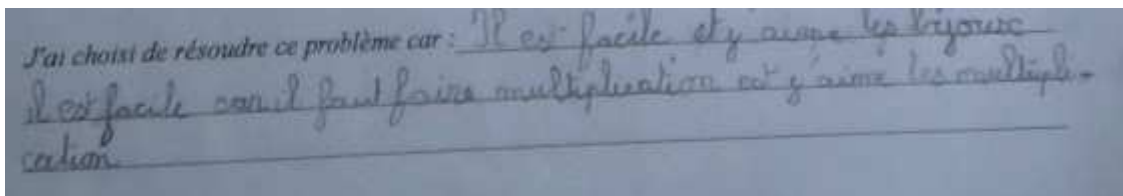 J'ai choisi de résoudre ce problème car : Il est facile et y aime les bijoux
il est facile car il faut faire multiplication et y'aime les multipli-
cation